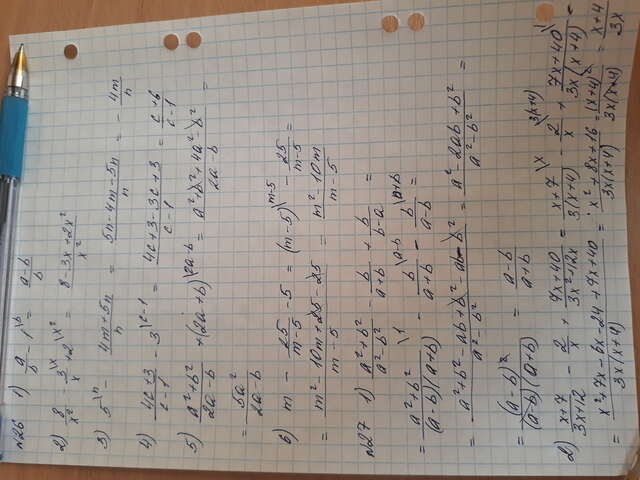 №26 1) a/b - 1\b = (a-b)/b
2) 8/x² - 3\x/x + 2\x² = (8-3x+2x²)/x²
3) 5\n - (4m+5n)/n = (5n-4m-5n)/n = -4m/n
4) (4c+3)/(c-1) - 3\c-1 = (4c+3-3c+3)/(c-1) = (c+6)/(c-1)
5) (a²+b²)/(2a-b) + (2a+b)\2a-b = (a²+b²+4a²-b²)/(2a-b) =
= 5a²/(2a-b)
6) m - 25/(m-5) - 5 = (m-5)\m-5 - 25/(m-5) =
= (m²-10m+25-25)/(m-5) = (m²-10m)/(m-5)
№27 1) (a²+b²)/(a²-b²) - b/(a+b) + b/(b-a) =
= (a²+b²)/((a-b)(a+b))\1 - b/(a+b)\a-b - b/(a-b)\a+b =
= (a²+b²-ab+b²-ab-b²)/(a²-b²) = (a²-2ab+b²)/(a²-b²) =
= (a-b)²/((a-b)(a+b)) = (a-b)/(a+b)
2) (x+7)/(3x+12) - 2/x + (7x+40)/(3x²+12x) = (x+7)/(3(x+4))\x - 2/x\3(x+4) + (7x+40)/(3x(x+4))\1
= (x²+7x-6x-24+7x+40)/(3x(x+4)) = (x²+8x+16)/(3x(x+4)) = (x+4)²/(3x(x+4)) = (x+4)/3x